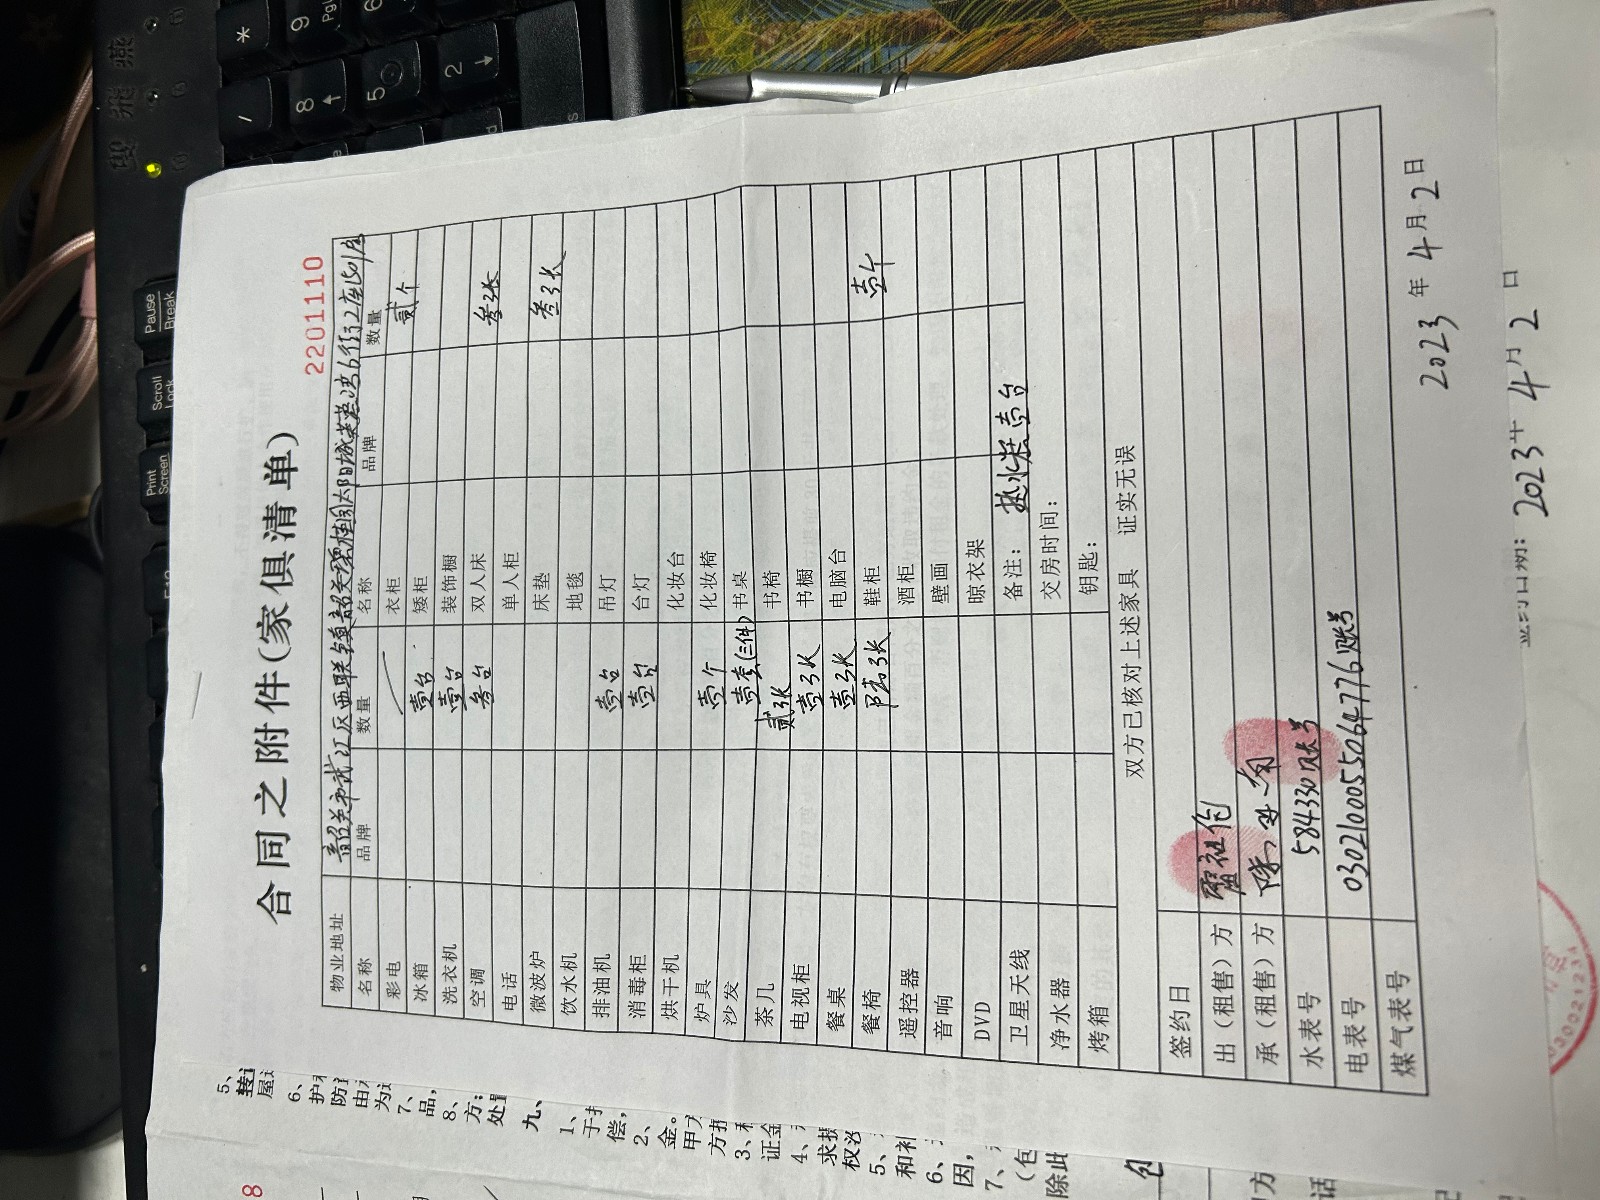 合同之附件(家俱清单)
2201110
物业地址 韶关市武江区西联镇韶关碧桂园太阳城芙蓉湾6街2座1501房
名称 品牌 数量 名称 品牌 数量
彩电 衣柜 贰个
冰箱 壹台 矮柜
洗衣机 壹台 装饰橱
空调 叁台 双人床 叁张
电话 单人柜
微波炉 床垫 叁张
饮水机 地毯
排油机 壹台 吊灯
消毒柜 壹台 台灯
烘干机 化妆台
炉具 壹个 化妆椅
沙发 壹套(三件) 书桌
茶几 贰张 书椅
电视柜 壹张 书橱
餐桌 壹张 电脑台
餐椅 张 鞋柜 壹个
遥控器 酒柜
音响 壁画
DVD 晾衣架
卫星天线 备注: 热水器壹台
净水器 交房时间:
烤箱 钥匙:
双方已核对上述家具 证实无误
签约日
出(租售)方
承(租售)方
水表号 584330账号
电表号 0302100550647776账号
煤气表号
2023年4月2日
2023年4月2日
5、
转
屋
6、
护
防
由
为
7、
品,
8、
方;
处
九、
1、
于
偿,
2、
金。
甲
方
3、
证金
4、
求
权
5、
和
6、
因,
7、
(包
除此
8
Print Screen
Scroll Lock
Pause Break
/
*
8
9
PgU
5
6
2